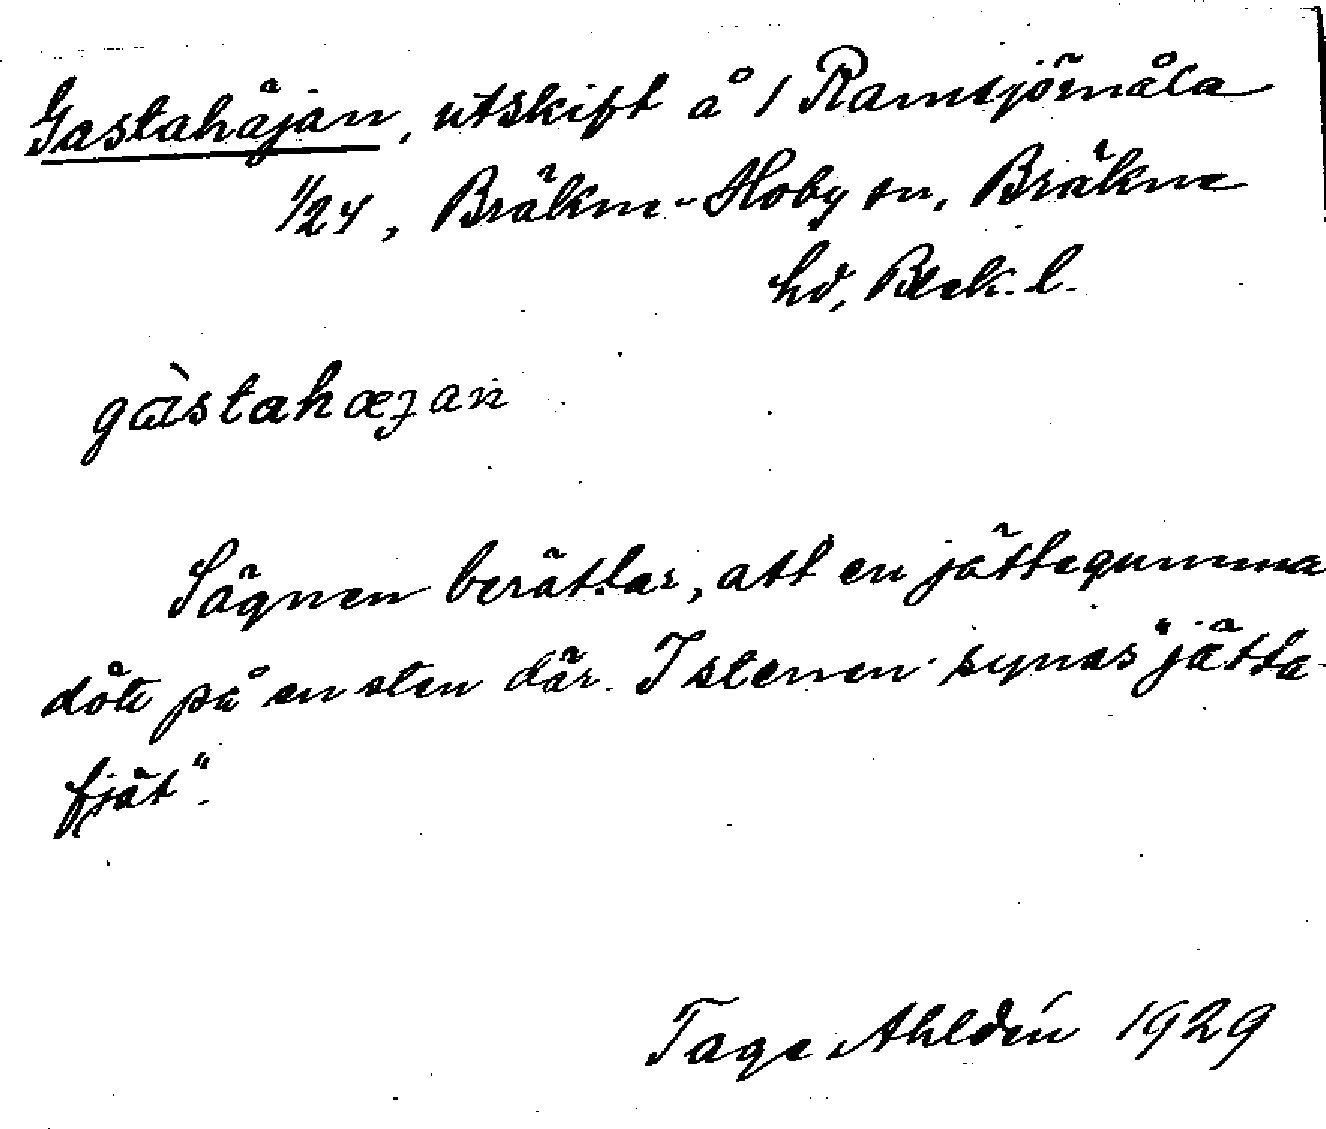 Gastahäjan, utskift å 1 Ramsjömåla
1/24, Bräkne-Hoby sn, Bräkne
hd, Blek. l.
gàstahæȷan
Sägnen berättar, att en jättegumma
döte på en sten där. I stenen synas "jätta
fjät".
Tage Ahldén 1929